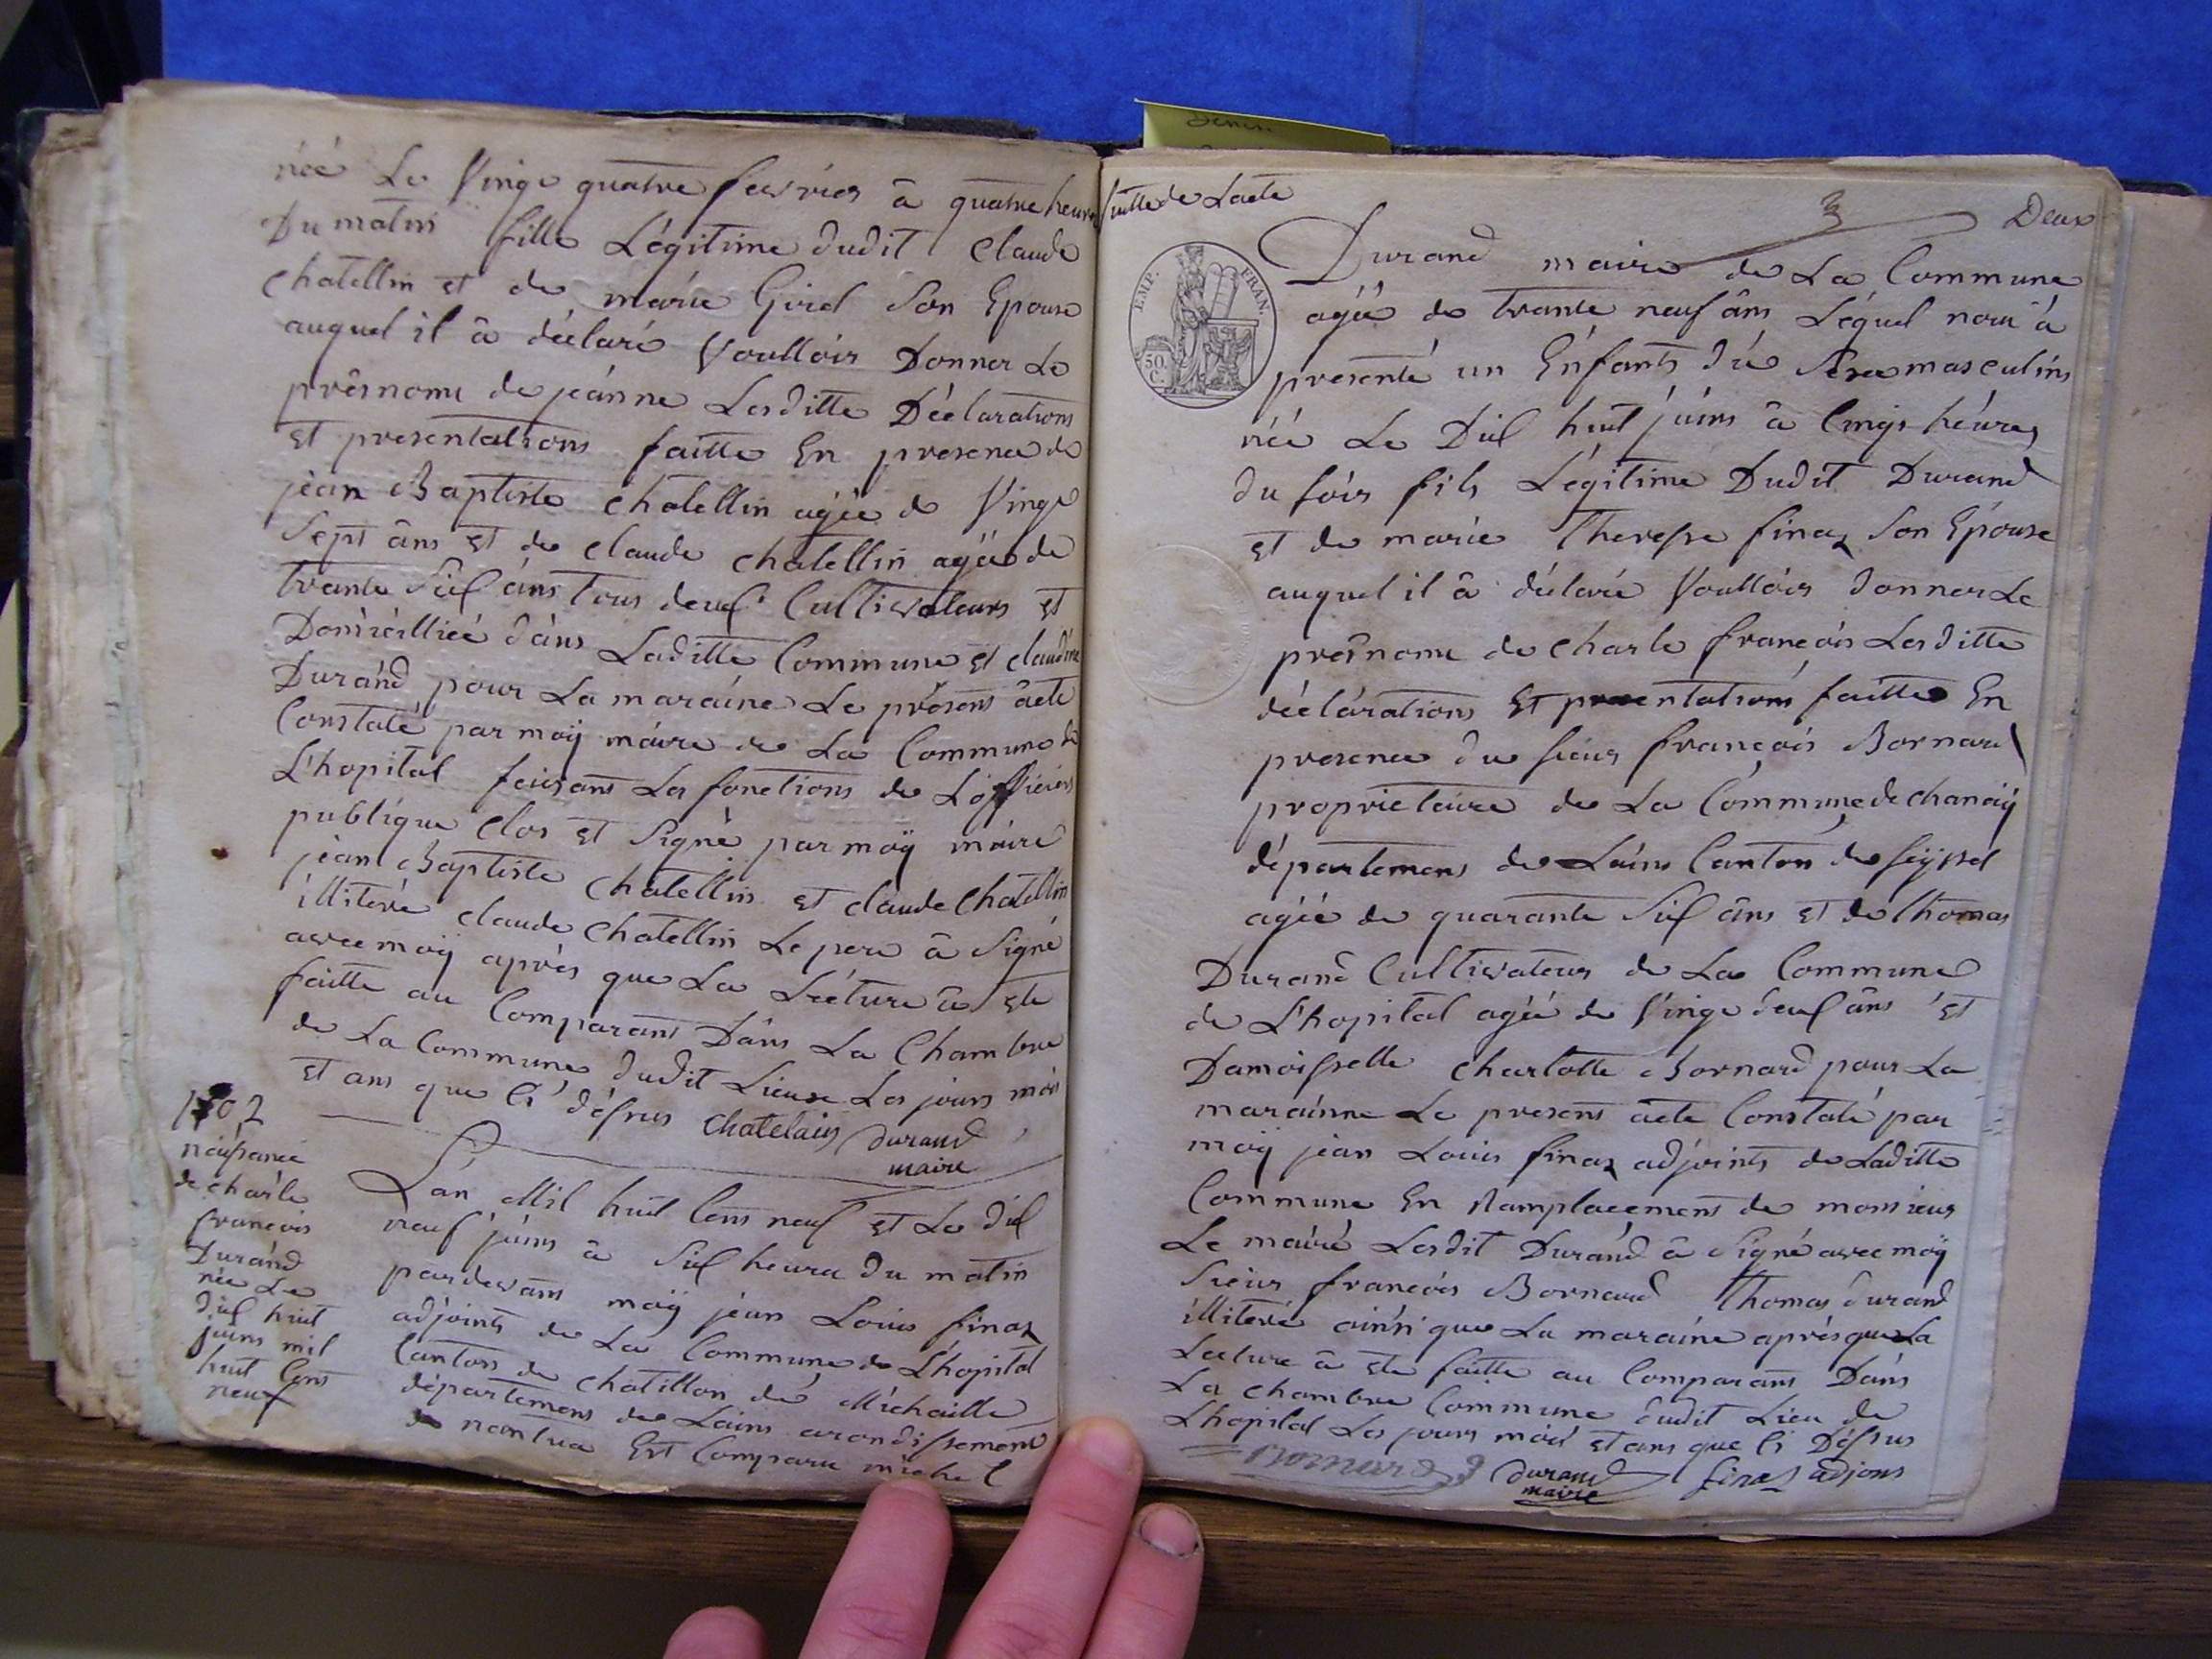 née Le Vingt quatre fevrier â quatre heures
Du matin fille Légitime dudit Claude
Chatellin et de marie Girel Son Epouse
auquel il â déclaré Voulloir Donner Le
prèsnome de jeánne Lesditte Déclarations
Et presentations faitte En presence de
jèan Baptiste Chatellin agée de Vingt
Sept âns Et de Claude Chatellin agée de
trante Six âns tous deux Cultivateurs et
Domicilliée dáns Laditte Commune Et claudine
Duránd pour La maraine Le présent ácte
Constaté par moÿ máire de La Commune de
L'hopital faisant Les fonctions de L'officier
publique Clos Et Signé par moÿ maire
jèan Baptiste Chatellin Et claude Chatellin
illiteré claude Chatellin Le pere â Signé
avec moÿ aprés que La Lécture â Ete
faitte au Comparant Dáns La Chambre
de La Commune dudit Lieux Les jours mois
Et ans que Ci déssus Chatelain durand
maire
néésance
de chárle
francois
Duránd
née Le
dix huit
juins mil
huit Cent
neuf
L'án Mil huit Cent neuf et Le dix
neuf juins â Six heure Du matin
pardevant moÿ jèan Louis finaz
adjoints de La Commune de L'hopital
Canton de Chatillon dé Michaille
départemens de Lains arondissement
de nantua Est Comparu michel
Suitte de Lacte
3
Deux
EMP. FRAN.
50. C.
Durand maire de La Commune
agée de trante neuf âns Léquel nous à
presenté un Énfants dué Sexe masculins
née Le Dix huit juins â Cinqs héures
du soir fils Légitime Dudit Durand
et de marie Therese finaz Son Epouse
auquel il â déclaré Voulloir donner Le
présnome de Charle francois Lesditte
déclárations Et presentations faitte En
presence du sieur françois Bornard
proprietaire de La Commune de chanaÿ
départemens de Lains Canton de Seÿssel
agée de quarante Six âns et de Thomas
Durand Cultivateur de La Commune
de L'hopital agée de Vingt deux âns Et
Damoisselle Charlotte Bornard pour La
marainne Le present acte Constaté par
moÿ jèan Louis finaz adjoints de Laditte
Commune En Ramplacement de monsieur
Le mairé Lesdit Durand â Signé avec moÿ
Sieur francois Bornard Thomas durand
illiteré ainsi que La maraine après que La
Lecture â Ete faitte au Comparant Dáns
La chambre Commune dudit Lieu de
Lhopital Les jours mois et ans que Ci Déssus
Bornard durand finaz adjons
maire